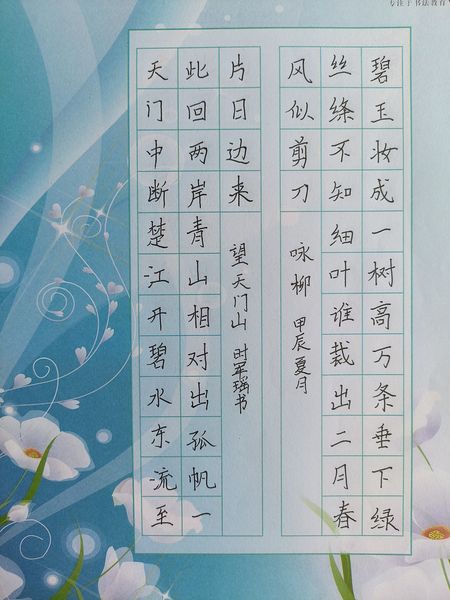 专注于书法教育
碧玉妆成一树高万条垂下绿
丝绦不知细叶谁裁出二月春
风似剪刀
咏柳 甲辰夏月
天门中断楚江开碧水东流至
此回两岸青山相对出孤帆一
片日边来
望天门山 时军瑞书